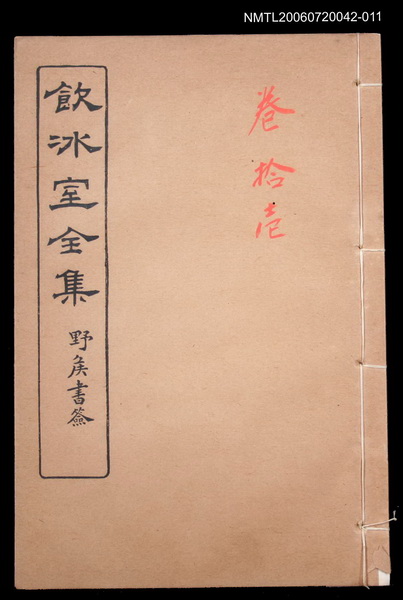 NMTL20060720042-011
卷拾壱
飲冰室全集
野矦書簽